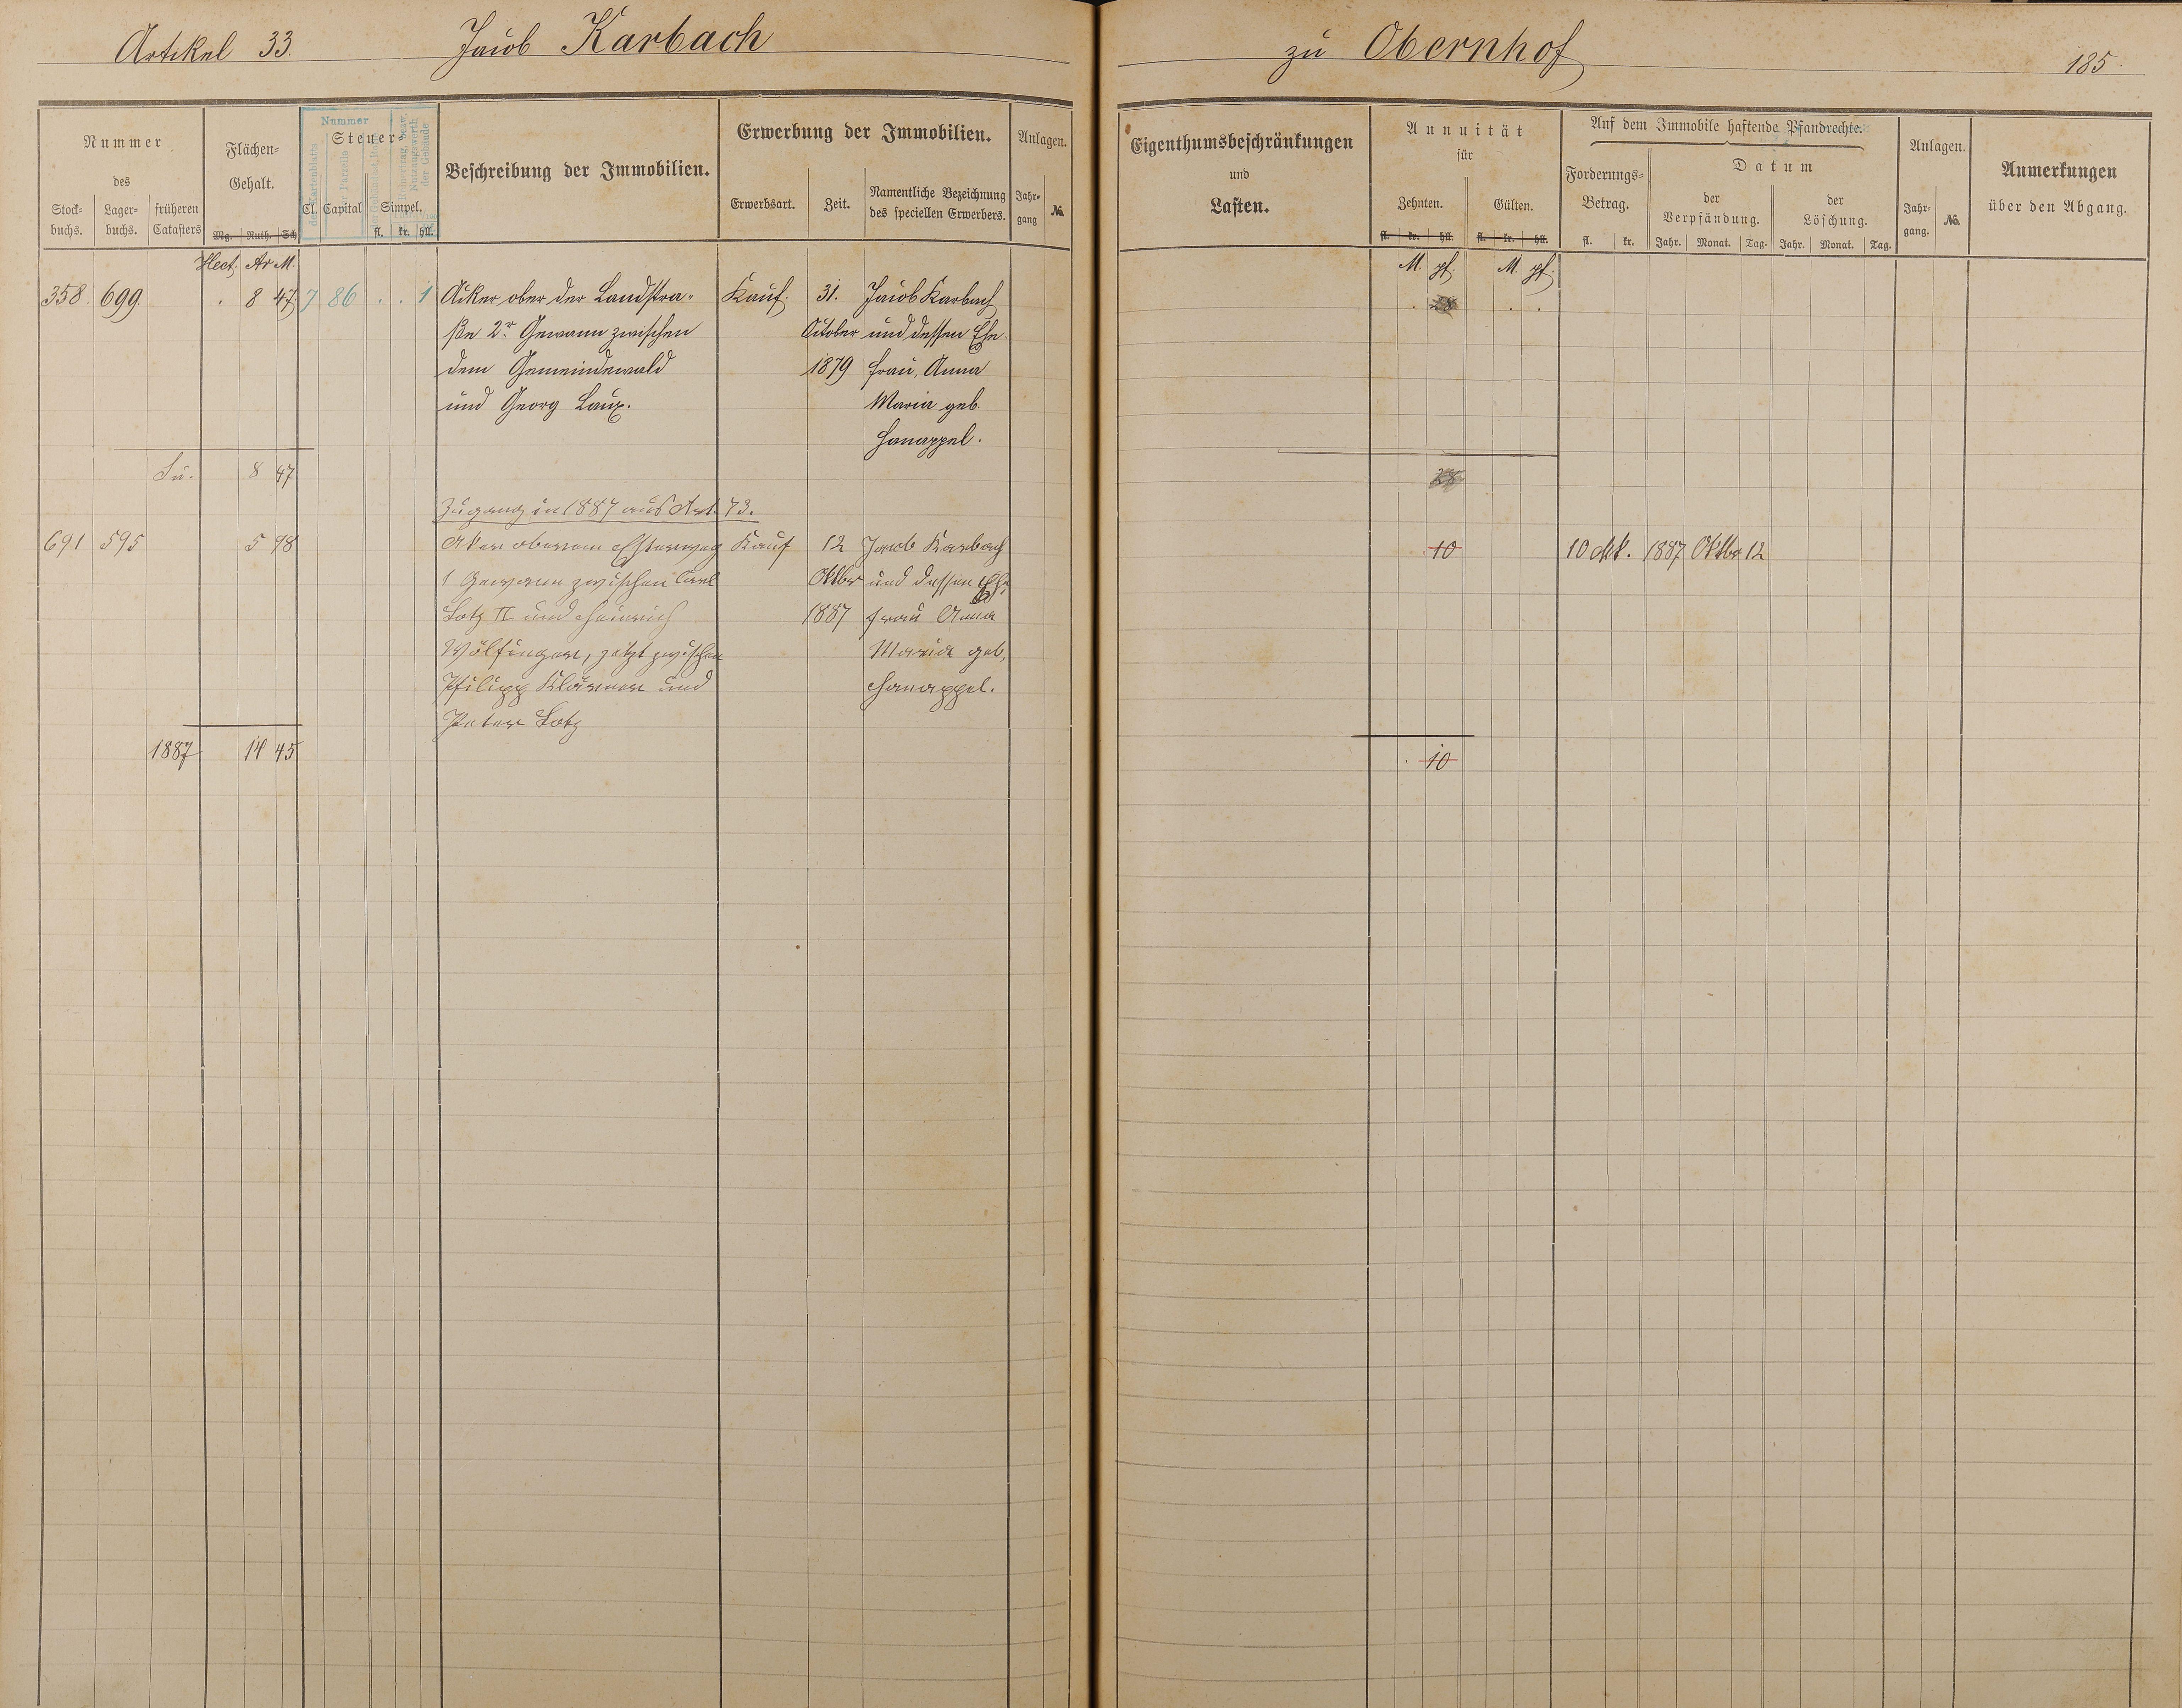 Artikel 33. Jacob Karbach zu Obernhof 185.
Nummer des
Stock-buchs. Lager-buchs. früheren Catasters
Flächen-Gehalt.
Mg. Ruth. Sch
Nummer
Steuer-
Cl. Capital Simpel.
fl. kr. hll.
Beschreibung der Immobilien.
Erwerbung der Immobilien.
Erwerbsart. Zeit. Namentliche Bezeichnung des speciellen Erwerbers.
Anlagen.
Jahr-gang No.
Eigenthumsbeschränkungen
und
Lasten.
Annuität
für
Zehnten. Gülten.
fl. kr. hll. fl. kr. hll.
Auf dem Immobile haftende Pfandrechte.
Forderungs-Betrag.
fl. kr.
Datum
der Verpfändung. der Löschung.
Jahr. Monat. Tag. Jahr. Monat. Tag.
Anlagen.
Jahr-gang. No.
Anmerkungen
über den Abgang.
Hect. Ar M. M. pf. M. pf.
358. 699 . 8 47 7 86 . . 1 Acker ober der Landstra- Kauf. 31. Jacob Karbach
ße 2r Gewann zwischen October und dessen Ehe
dem Gemeindewald 1879 frau, Anna
und Georg Laux. Maria geb.
Hanappel.
Su. 8 47 28
Zugang in 1887 aus Art. 73.
691 595 5 98 Aker oberem Kauf 12 Jacob Karbach 10 1887 Oktbr 12
1 Gewann zwischen Carl Oktbr und dessen Ehe
Lotz II und Heinrich 1887 frau Anna
Wölfinger, jetzt zwischen Maria geb.
Philipp Klörner und Hanappel.
Peter Lotz
1887 14 45 . 10